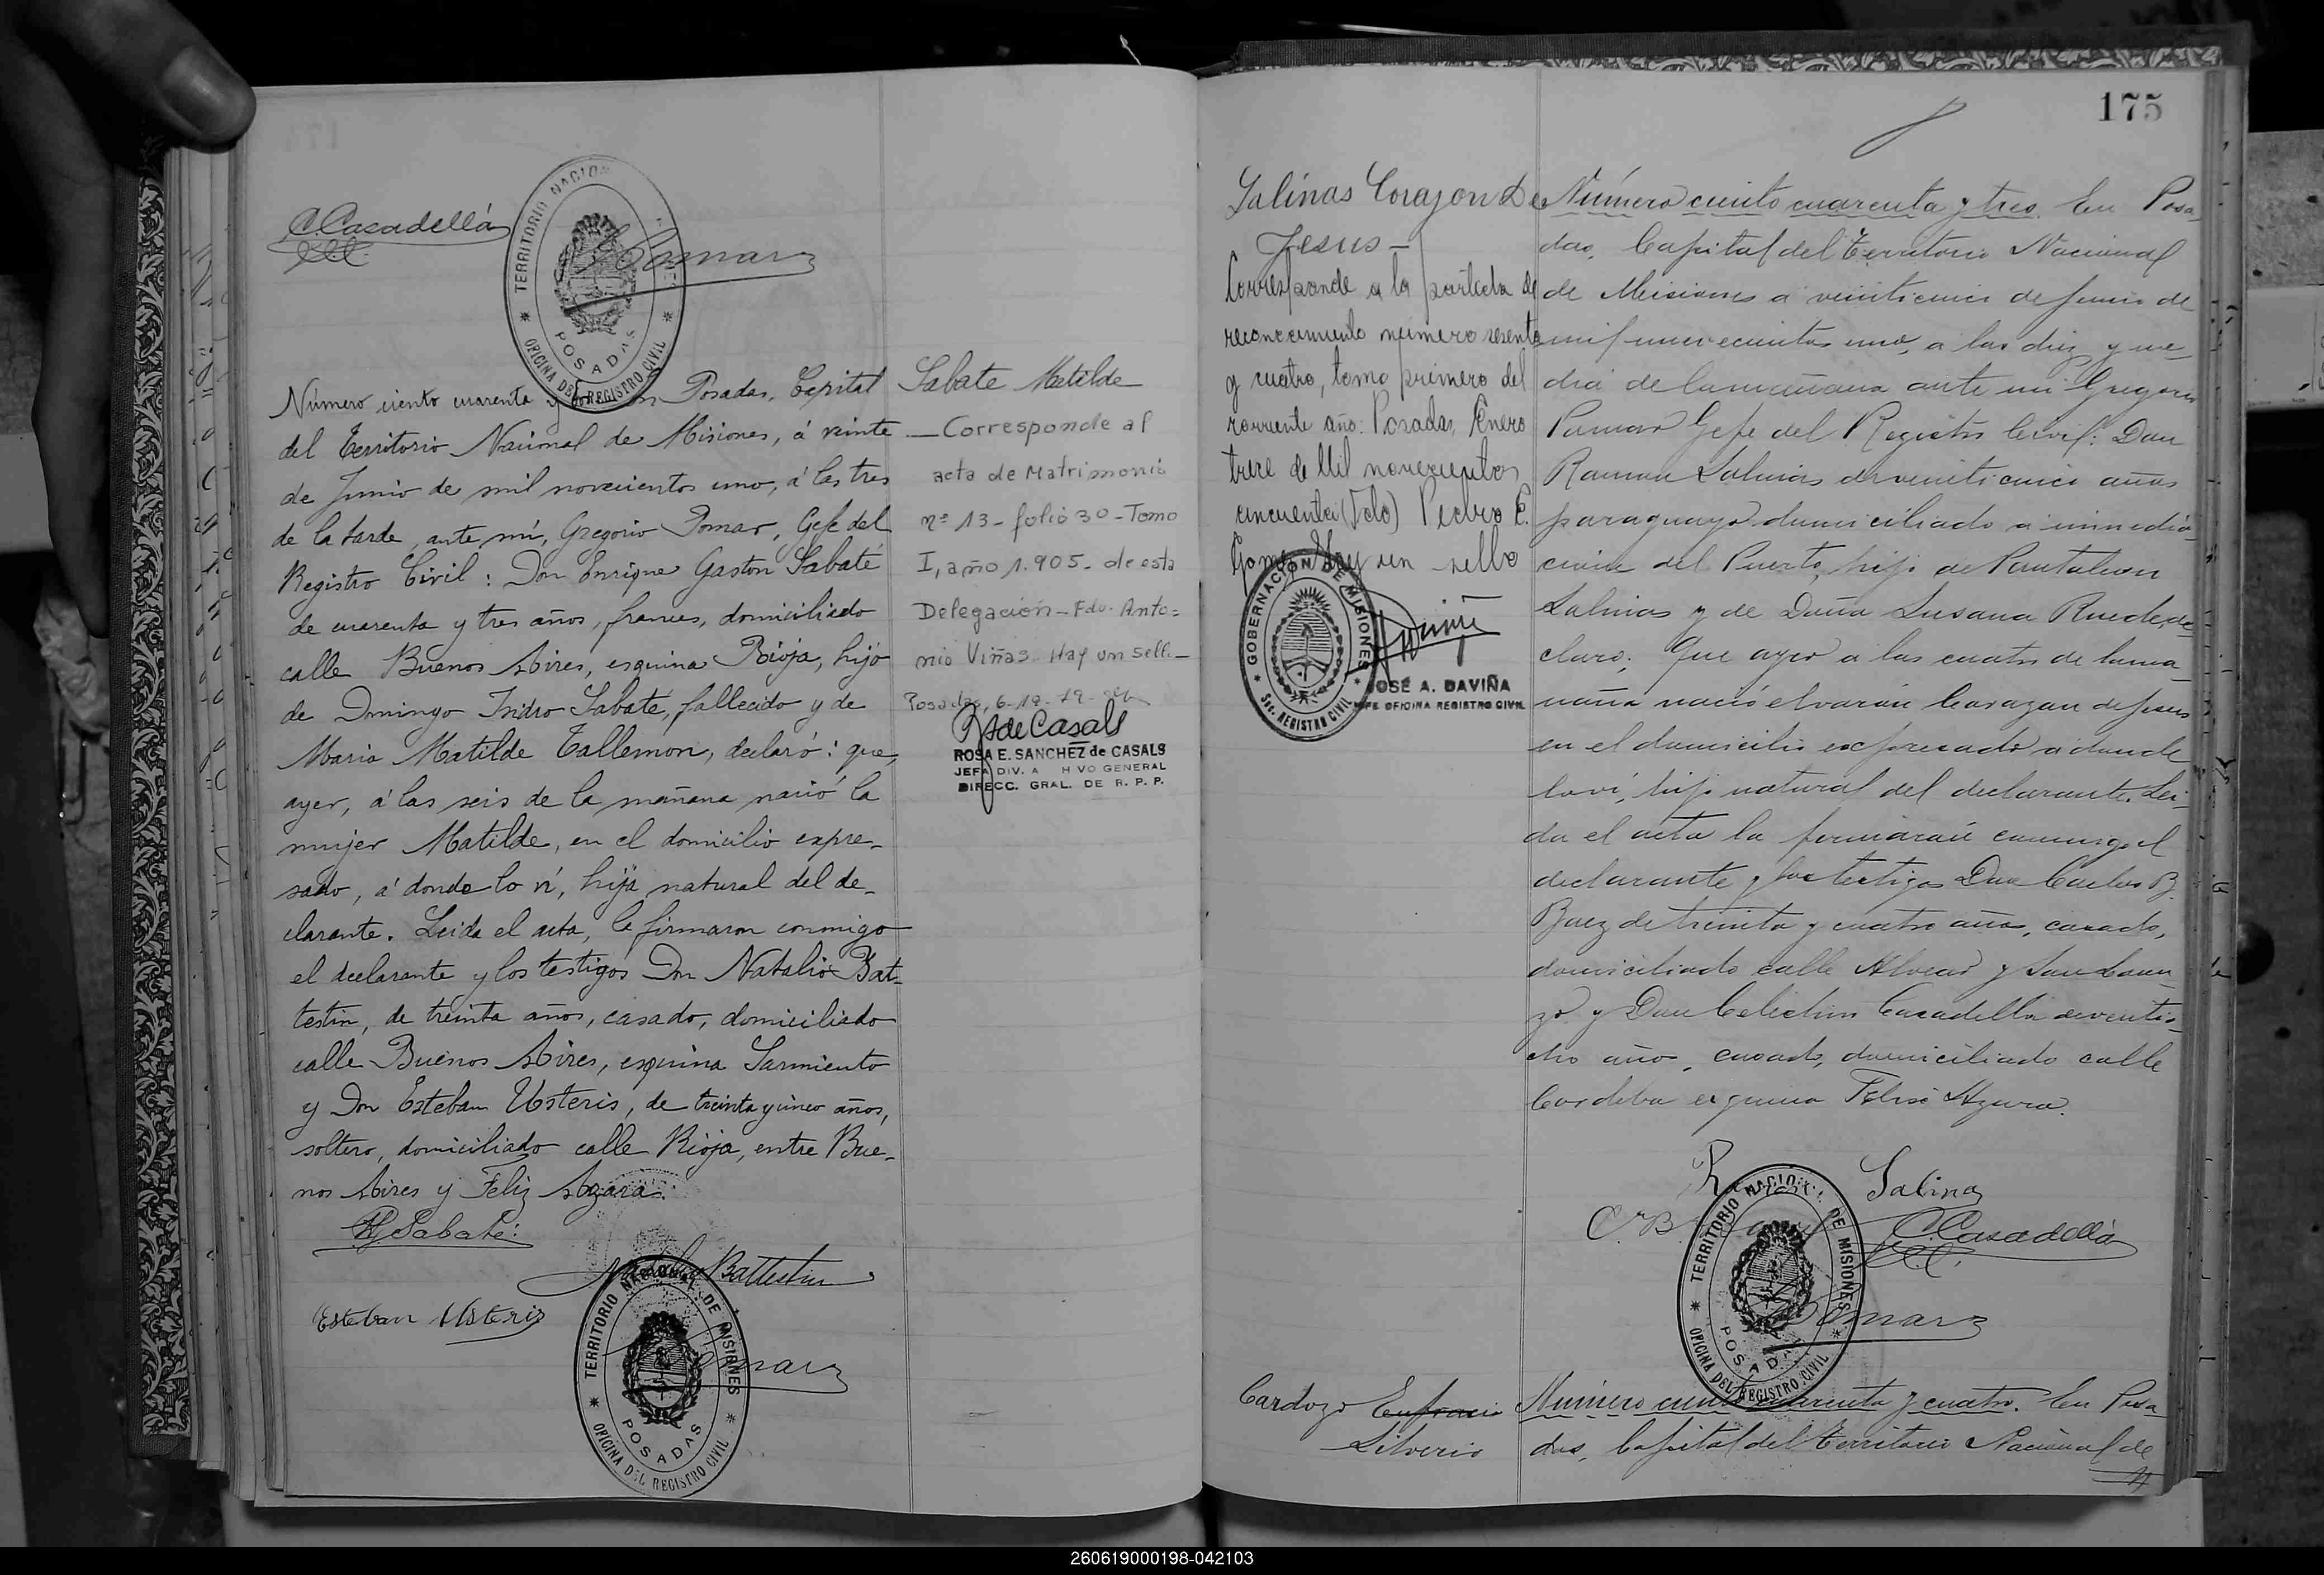 C. Casadellá
TERRITORIO NACIONAL
OFICINA DEL REGISTRO CIVIL
POSADAS
Pomar
Número ciento cuarenta y Posadas, Capital
del Territorio Nacional de Misiones, á veinte
de Junio de mil novecientos uno, á las tres
de la tarde, ante mí, Gregorio Pomar, Gefe del
Registro Civil: Don Enrique Gaston Sabaté
de cuarenta y tres años, frances, domiciliado
calle Buenos Aires, esquina Rioja, hijo
de Domingo Isidro Sabaté, fallecido y de
Maria Matilde Tallemon, declaró: que,
ayer, á las seis de la mañana nació la
mujer Matilde, en el domicilio expre-
sado, á donde lo ví, hija natural del de-
clarante. Leida el acta, la firmaron conmigo
el declarante y los testigos Don Natalio Bat-
testin, de treinta años, casado, domiciliado
calle Buenos Aires, esquina Sarmiento
y Don Esteban Usteris, de treinta y cinco años,
soltero, domiciliado calle Rioja, entre Bue-
nos Aires y Feliz Azara.
Sabaté
Natalio Battestin
Esteban Usteris
Pomar
TERRITORIO NACIONAL DE MISIONES
OFICINA DEL REGISTRO CIVIL
POSADAS
Sabate Matilde
— Corresponde al
acta de Matrimonio
nº 13 - folio 30 - Tomo
I, año 1.905 - de esta
Delegación - Fdo. Anto=
nio Viñas. Hay un sello -
Posadas, 6-10-79
RSdeCasals
ROSA E. SANCHEZ de CASALS
JEFA DIV. A HIVO GENERAL
DIRECC. GRAL. DE R. P. P.
175
Salinas Corazon De
Jesus -
Corresponde a la partida de
reconocimiento número sesenta
y cuatro, tomo primero del
corriente año. Posadas, Enero
trece de Mil novecientos
cincuenta (Fdo) Pedro E.
Gomez Hay un sello
GOBERNACION DE MISIONES
Sec. REGISTRO CIVIL
JOSÉ A. DAVIÑA
JEFE OFICINA REGISTRO CIVIL
Número ciento cuarenta y tres. En Posa-
das, Capital del Territorio Nacional
de Misiones a veinticinco de Junio de
mil novecientos uno, a las diez y me-
dia de la mañana ante mi Gregorio
Pomar Gefe del Registro Civil: Don
Ramon Salinas de veinticinco años
paraguayo domiciliado a inmedia-
cion del Puerto, hijo de Pantaleon
Salinas y de Doña Susana Rueda, de-
claro: Que ayer a las cuatro de la ma-
ñana nació el varón Corazon de Jesus
en el domicilio expresado a donde
lo ví, hijo natural del declarante. Lei-
da el acta la firmarón conmigo el
declarante y los testigos Don Carlos B.
Baez de treinta y cuatro años, casado,
domiciliado calle Alvear y San Loren-
zo y Don Celestino Casadella de veinti-
cho año, casado, domiciliado calle
Cordoba esquina Felix Azara.
R Salina
C. B.
C. Casadellá
Pomar
TERRITORIO NACIONAL DE MISIONES
OFICINA DEL REGISTRO CIVIL
POSADAS
Cardozo Eufracio
Silverio
Número ciento cuarenta y cuatro. En Posa-
das, Capital del Territorio Nacional de
260619000198-042103